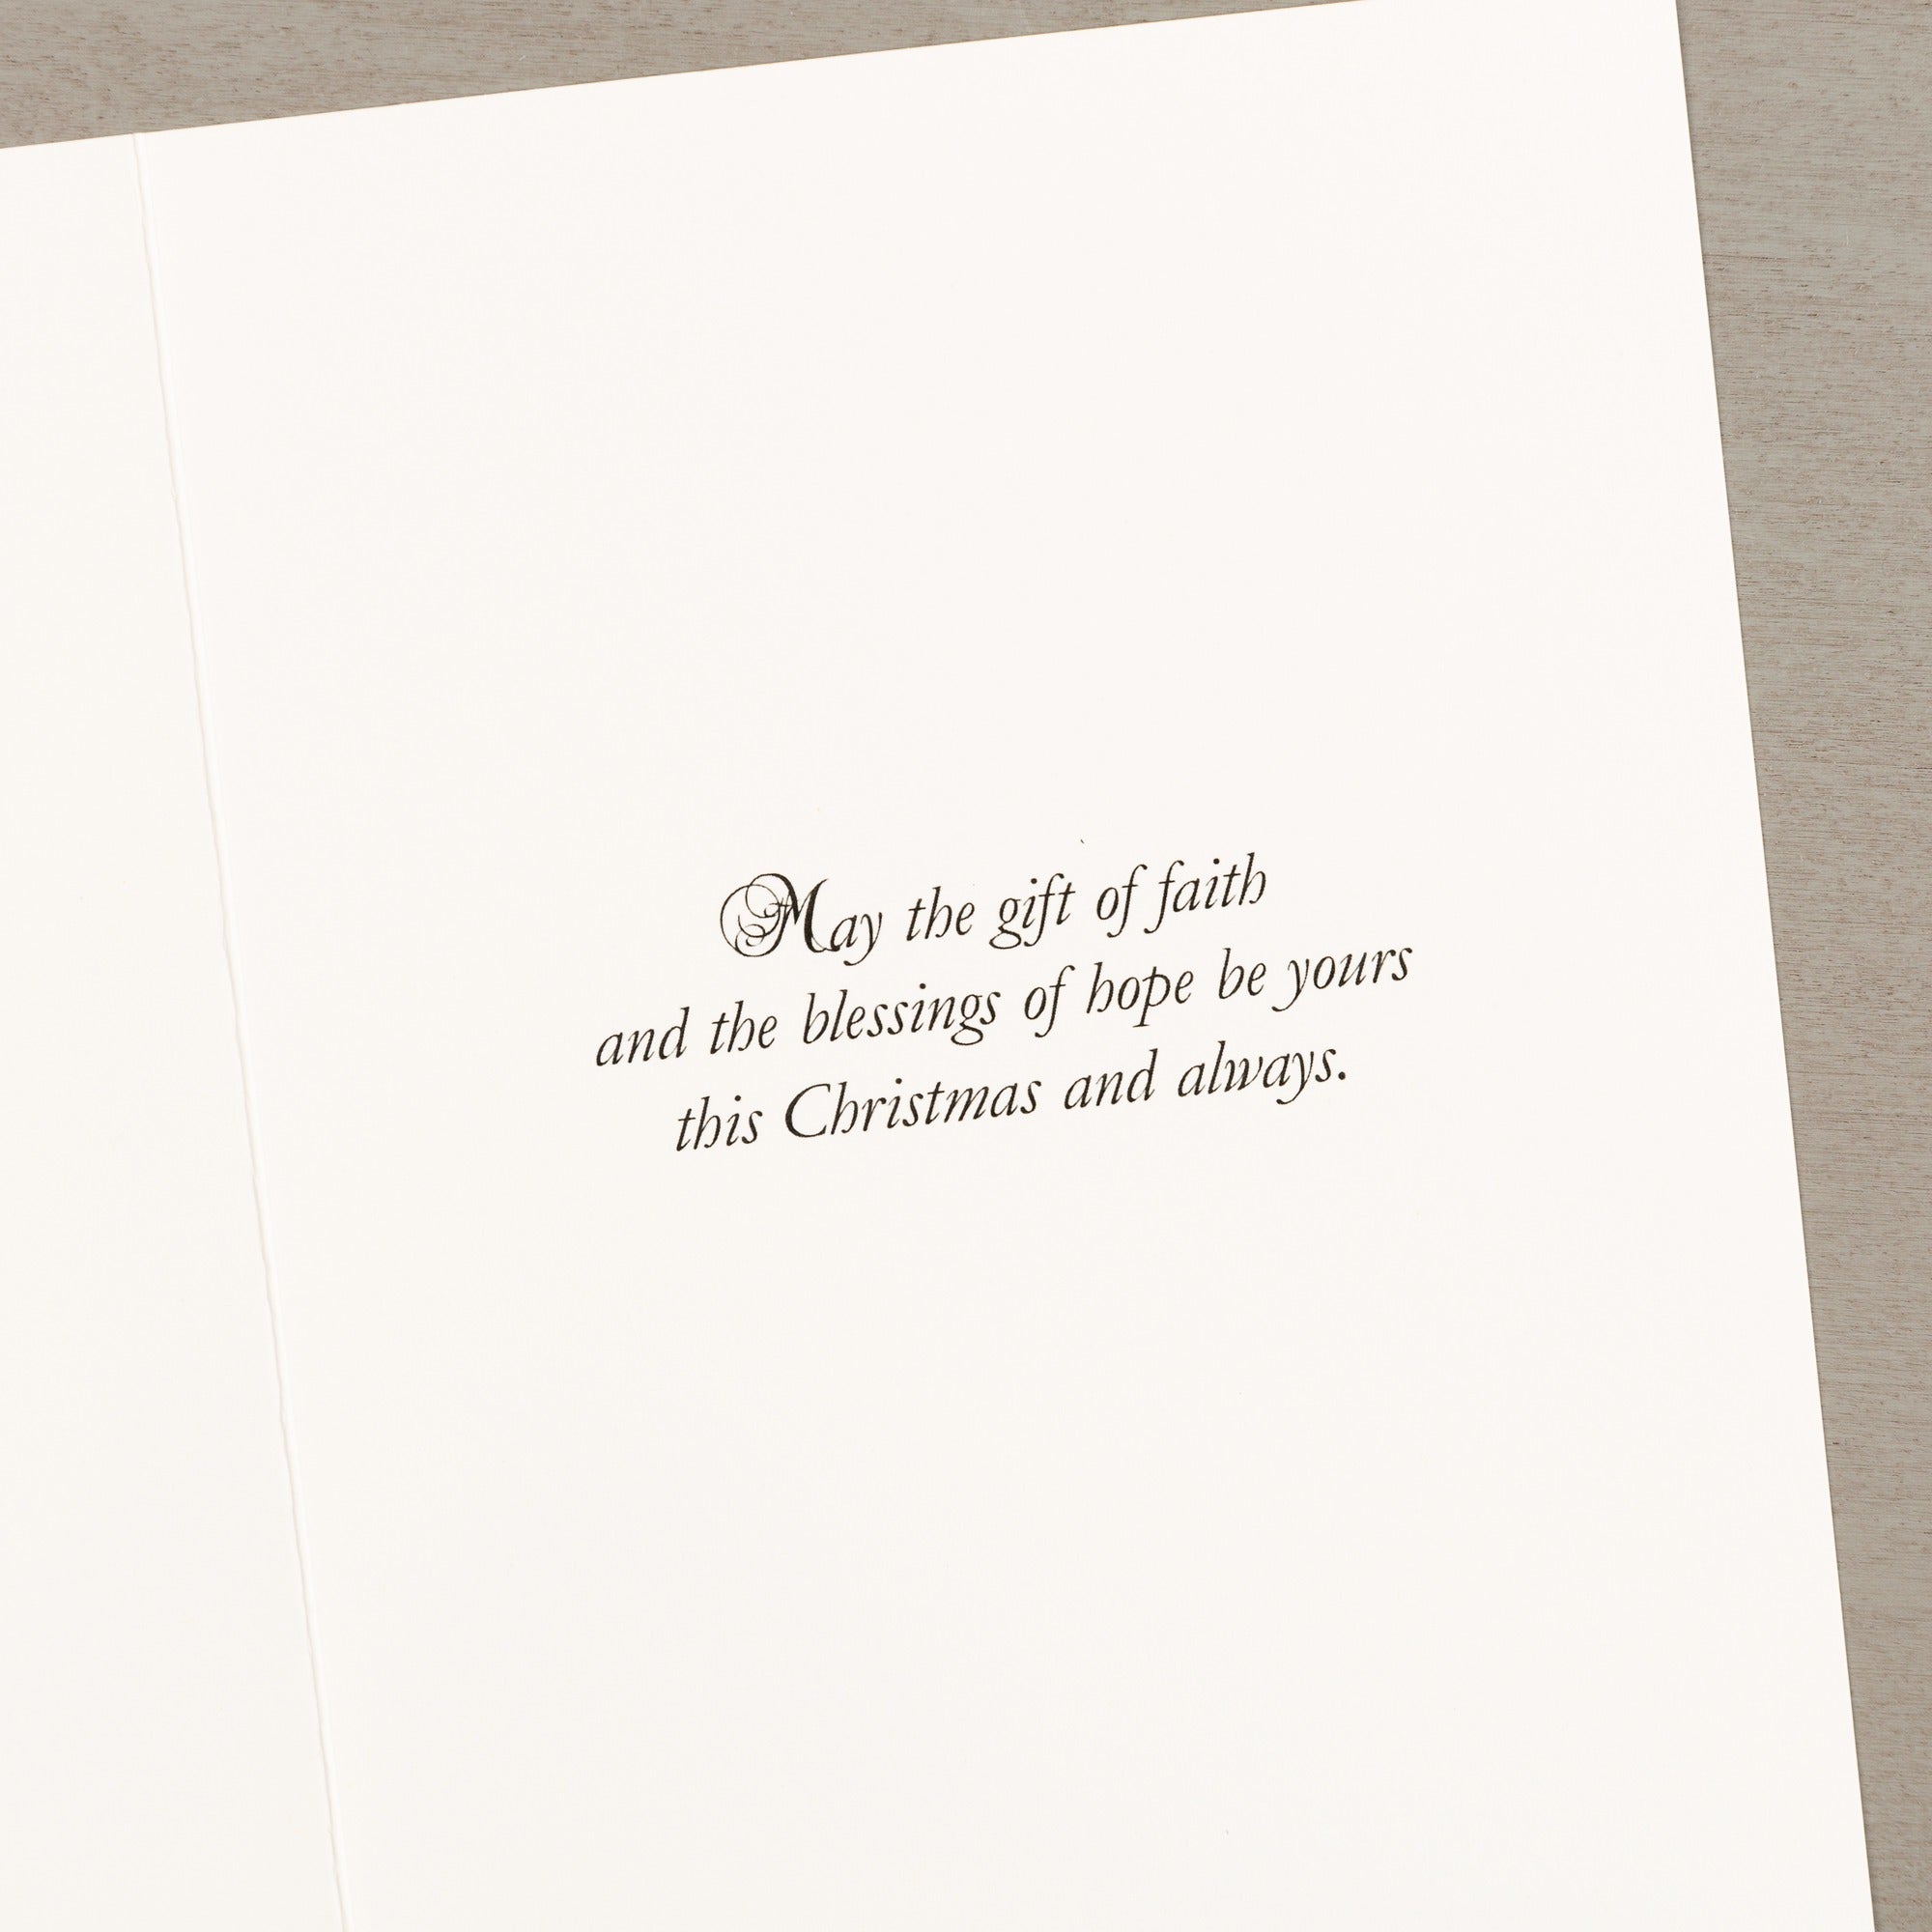 May the gift of faith
and the blessings of hope be yours
this Christmas and always.